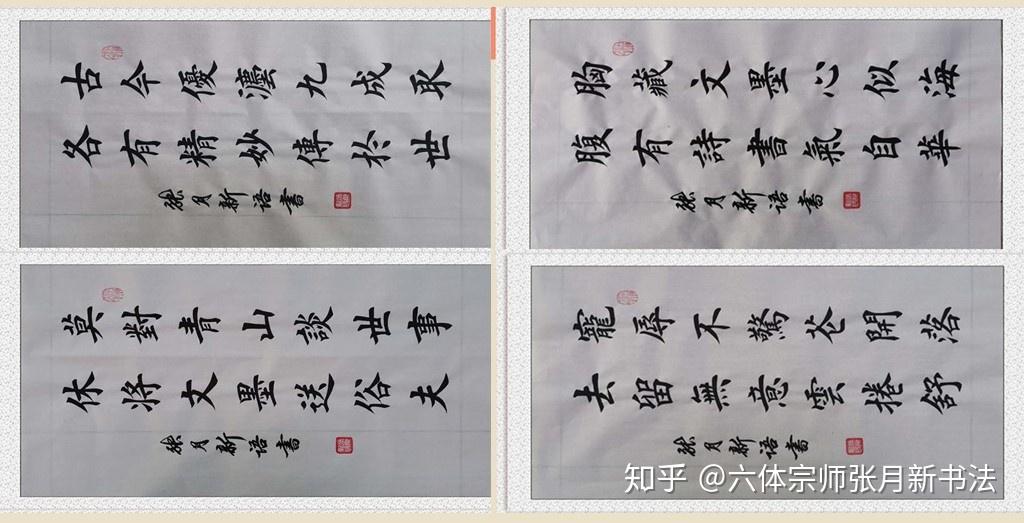 古今優九成取
各有精妙傳於世
張月新語書
胸藏文墨心似海
腹有詩書氣自華
張月新語書
莫對青山談世事
休将文墨送俗夫
張月新語書
寵辱不驚花開落
去留無意雲捲舒
張月新語書
知乎 @六体宗师张月新书法